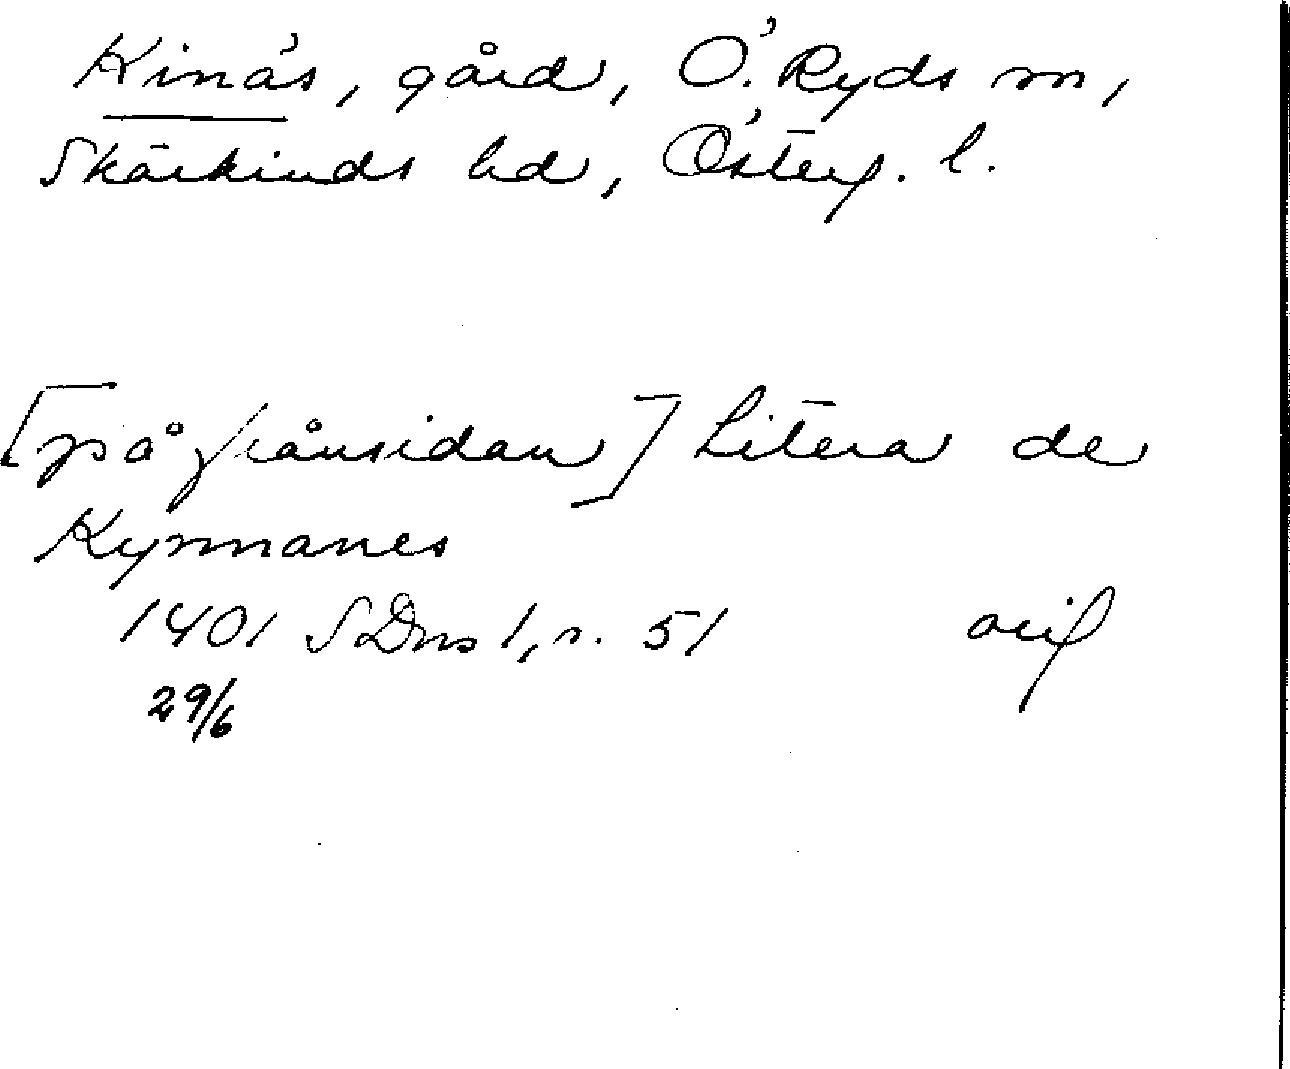 Kinäs, gård, Ö. Ryds sn,
Skärkinds hd, Österg. l.
[på frånsidan] Litera de
Kynnanes
1401 SDns 1, s. 51 orig
29/6